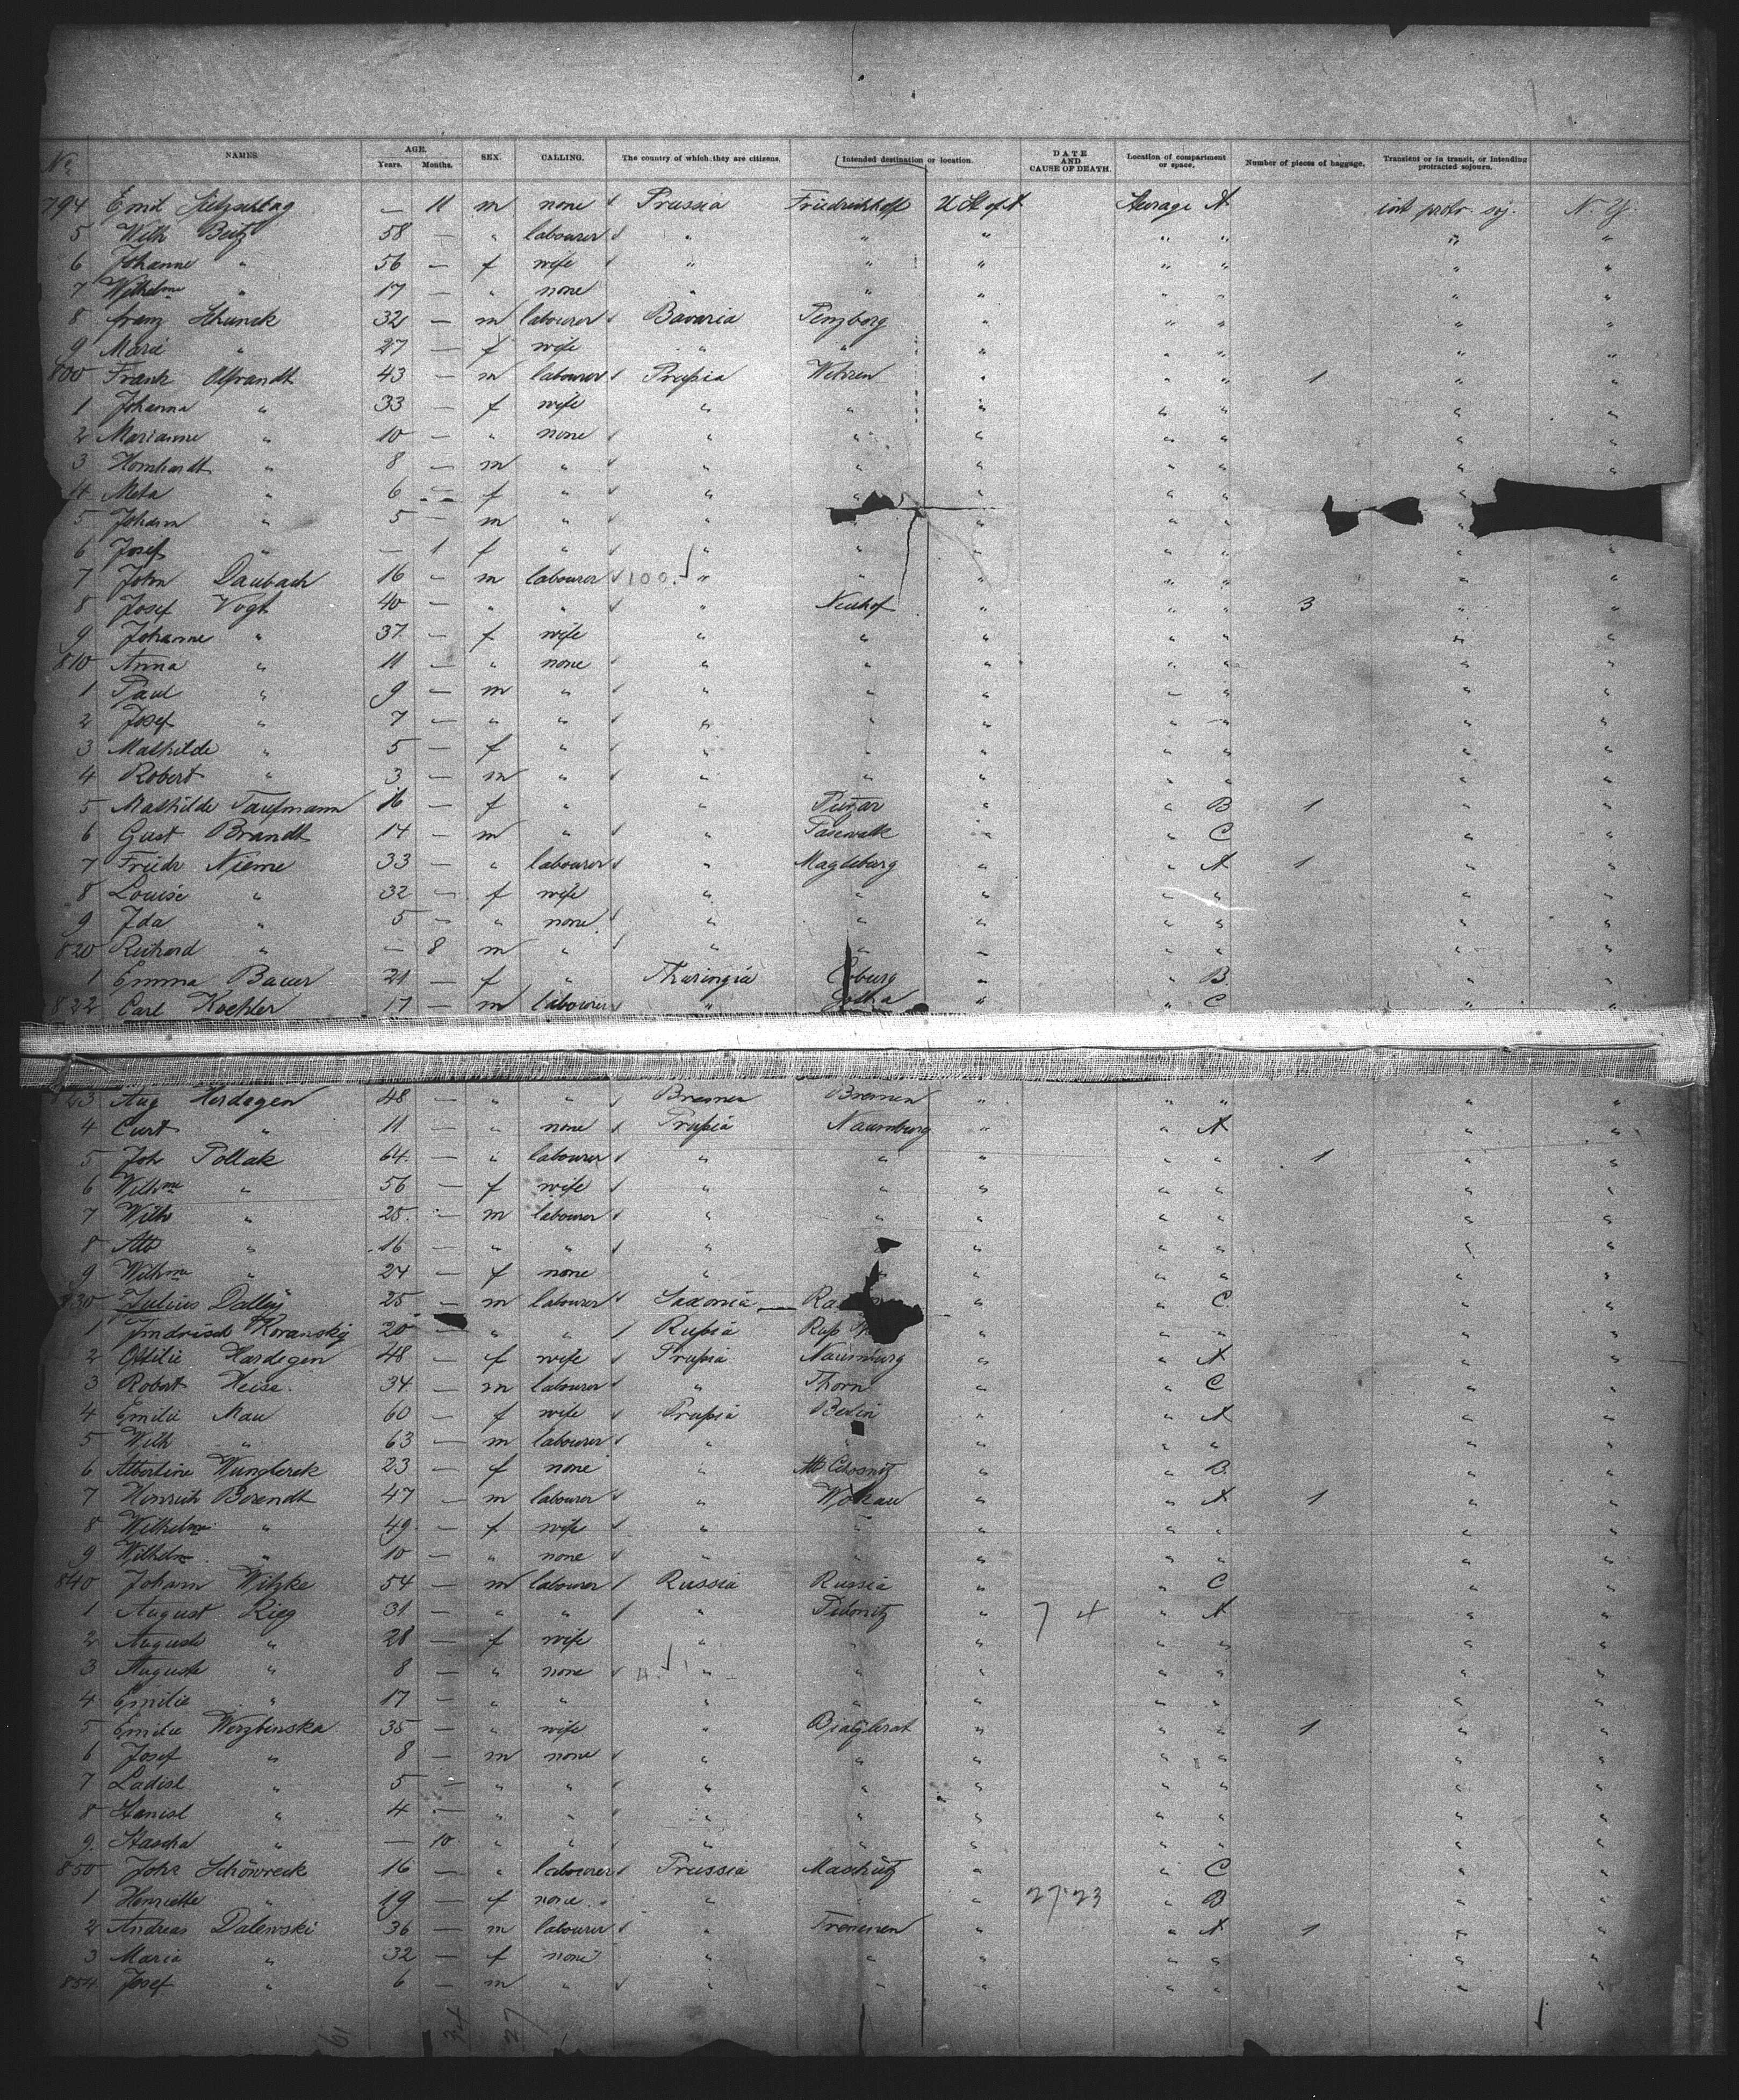 No. NAMES. AGE. Years. Months. SEX. CALLING. The country of which they are citizens. Intended destination or location. DATE AND CAUSE OF DEATH. Location of compartment or space. Number of pieces of baggage. Transient or in transit, or intending protracted sojourn.
794 Emil — 11 m none Prussia Friedrichhoff U St of A Sterage A int protr. soj. N. Y.
5 Wilh Beitz 58 — " labourer " " " " " " "
6 Johanne " 56 — f wife " " " " " " "
7 Wilhelme " 17 — " none " " " " " " "
8 Franz Schunck 32 — m labourer Bavaria Penzberg " " " " "
9 Marie " 27 — f wife " " " " " " "
800 Frank 43 — m labourer Prussia " " " 1 " "
1 Johanna " 33 — f wife " " " " " " "
2 Marianne " 10 — " none " " " " " " "
3 " 8 — m " " " " " " " "
4 Meta " 6 — f " " " " " " "
5 Johann " 5 — m " " " " " "
6 Josef " — 1 f " " " " " " " "
7 John Daubach 16 — m labourer 100 " " " " " " "
8 Josef Vogt 40 — " " " Neuhof " " " 3 " "
9 Johanne " 37 — f wife " " " " " " "
810 Anna " 11 — " none " " " " " " "
1 Paul " 9 — m " " " " " " " "
2 Josef " 7 — " " " " " " " " "
3 Mathilde " 5 — f " " " " " " " "
4 Robert " 3 — m " " " " " " " "
5 Mathilde Taufmann 16 — f " " " " B 1 " "
6 Gust Brandt 14 — m " " Pasewalk " " C " "
7 Friedr Nieme 33 — " labourer " Magdeburg " " A 1 " "
8 Louise " 32 — f wife " " " " " " "
9 Ida " 5 — " none " " " " " " "
820 Richard " — 8 m " " " " " " " "
1 Emma Bauer 21 — f " Thuringia Coburg " " B " "
822 Carl Koehler 17 — m labourer " Gotha " " C " "
23 Aug Hardegen 48 — " " Bremen Bremen " " " " "
4 Curt " 11 — " none Prussia Naumburg " " A " "
5 Joh Pollak 64 — " labourer " " " " " 1 " "
6 Wilhme " 56 — f wife " " " " " " "
7 Wilh " 25 — m labourer " " " " " " "
8 " 16 — " " " " " " " "
9 Wilhme " 24 — f none " " " " " "
830 Julius 25 — m labourer Saxonia " " C " "
1 20 — " " Russia " " " " "
2 Ottilie Hardegen 48 — f wife Prussia Naumburg " " A " "
3 Robert Heise 34 — m labourer " Thorn " " C " "
4 Emilie Mau 60 — f wife Prussia Berlin " " A " "
5 Wilh " 63 — m labourer " " " " " " "
6 Albertine 23 — f none " " " B " "
7 Heinrich Berendt 47 — m labourer " " " A 1 " "
8 Wilhelme " 49 — f wife " " " " " " "
9 Wilhelm " 10 — " none " " " " " " "
840 Johann Witzke 54 — m labourer Russia Russia " " C " "
1 August Rieg 31 — " " " " 7 4 " A " "
2 Auguste " 28 — f wife " " " " " " "
3 Auguste " 8 — " none 4 " " " " " " "
4 Emilie " 17 — " " " " " " " " "
5 Emilie 35 — " wife " " " " 1 " "
6 Josef " 8 — m none " " " " " " "
7 Ladisl " 5 — " " " " " " " " "
8 Stanisl " 4 — " " " " " " " " "
9 Stascha " — 10 " " " " " " " " "
850 16 — " labourer Prussia " " C " "
1 Henriette " 19 — f none " " " 27 23 " B " "
2 Andreas Dalewski 36 — m labourer " " " A 1 " "
3 Maria " 32 — f none " " " " " " "
854 Josef " 6 — m " " " " " " " "
61 34 27